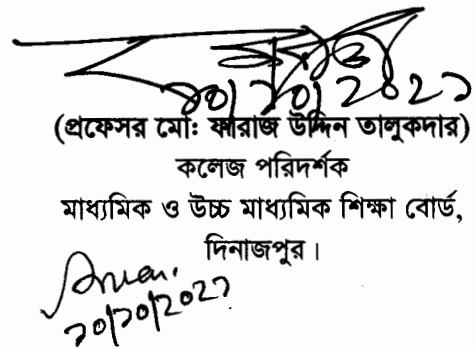 ২০/১০/2021
(প্রফেসর মোঃ ফারাজ উদ্দিন তালুকদার)
কলেজ পরিদর্শক
মাধ্যমিক ও উচ্চ মাধ্যমিক শিক্ষা বোর্ড,
দিনাজপুর।
২০/১০/2021